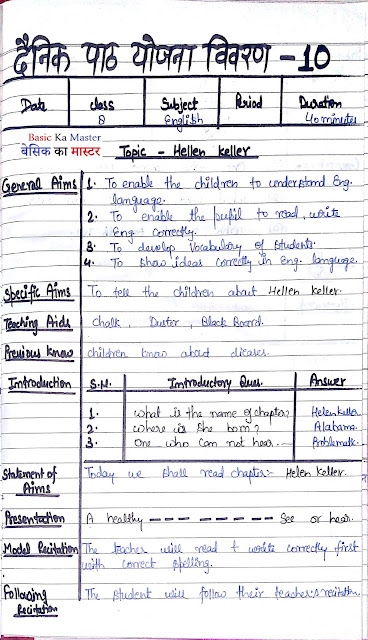 दैनिक पाठ योजना विवरण - 10
Date Class Subject Period Duration
8 English 40 minutes
Basic Ka Master
बेसिक का मास्टर Topic - Hellen keller
General Aims 1. To enable the children to understand Eng.
language.
2. To enable the pupil to read, write
Eng correctly.
3. To develop Vocabulary of Students.
4. To Show ideas correctly in Eng. language.
Specific Aims To tell the children about Hellen keller.
Teaching Aids chalk, Duster, Black Board.
Previous know children know about dieases.
Introduction S.N. Introductory Ques. Answer
1. what is the name of chapter? Helen keller
2. where is she born? Alabama.
3. One who can not hear. Problematic.
Statement of Aims Today we shall read chapter:- Hellen Keller.
Presentation A healthy ------- See or hear.
Model Recitation The teacher will read & write correctly first
with correct spelling.
Following Recitation The student will follow their teacher's recitation.